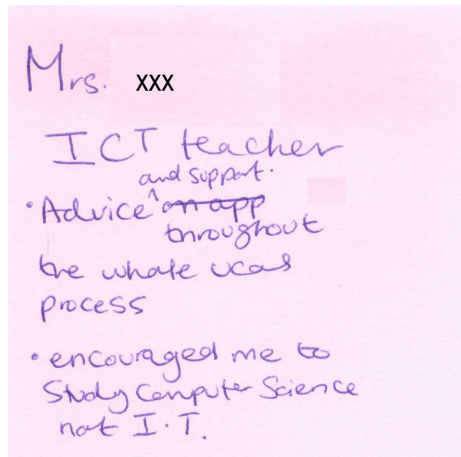 Mrs. XXX
ICT teacher
and support.
• Advice ^ on app
throughout
the whole ucas
process
• encouraged me to
Study Computer Science
not I.T.